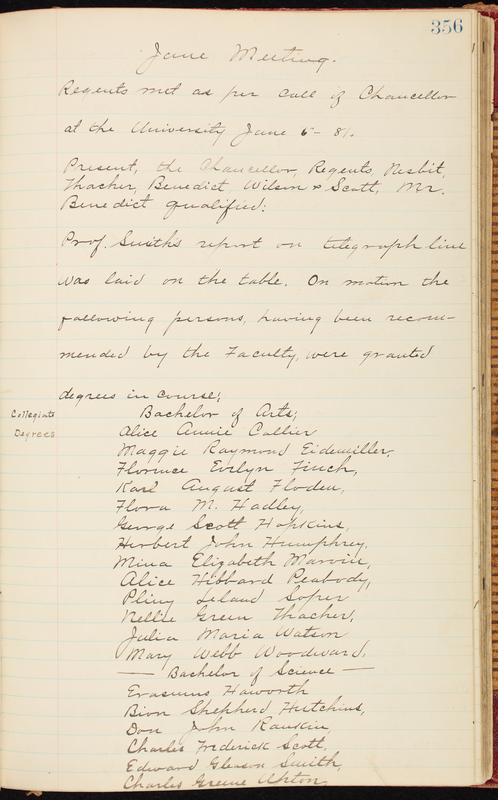 356
June Meeting.
Regents met as per call of Chancellor
at the University June 6 - 81.
Present, the Chancellor, Regents, Nesbit,
Thacher, Benedict, Wilson & Scott, Mr.
Benedict qualified:
Prof. Smith's report on telegraph line
was laid on the table. On motion the
following persons, having been recom-
mended by the Faculty, were granted
degrees in course;
Collegiate
Degrees
Bachelor of Arts;
Alice Annie Collier
Maggie Raymond Eidemiller,
Florence Evelyn Finch,
Karl August Floden,
Flora M. Hadley,
George Scott Hopkins,
Herbert John Humphrey,
Mina Elizabeth Marvin,
Alice Hibbard Peabody,
Pliny Leland Soper
Nellie Green Thacher,
Julia Maria Watson
Mary Webb Woodward,
— Bachelor of Science —
Erasmus Haworth
Bion Shepherd Hutchins,
Don John Rankin
Charles Frederick Scott,
Edward Gleason Smith,
Charles Greene Upton,